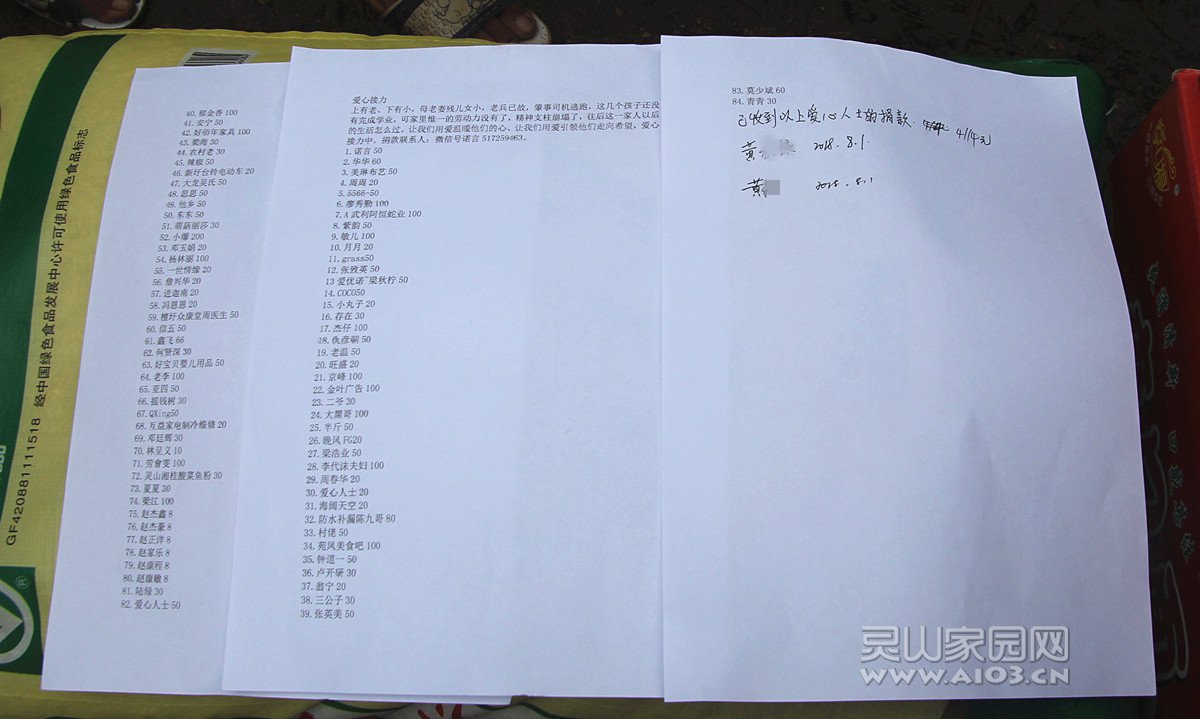 爱心接力
上有老、下有小，母老妻残儿女小，老兵已故，肇事司机逃跑，这几个孩子还没
有完成学业，可家里惟一的劳动力没有了，精神支柱崩塌了，往后这一家人以后
的生活怎么过，让我们用爱温暖他们的心，让我们用爱引领他们走向希望，爱心
接力中。捐款联系人：微信号诺言517259463。
1.诺言 50
2.华华 60
3.美琳布艺 50
4.周周 20
5.5566-50
6.廖秀勤 100
7.A 武利阿恒蛇业 100
8.紫韵 50
9.敏儿 100
10.月月 20
11.grass50
12.张致英 50
13 爱优诺~梁秋柠 50
14.COCO50
15.小丸子 20
16.存在 30
17.杰仔 100
18.仇彦朝 50
19.老温 50
20.旺盛 20
21.京峰 100
22.金叶广告 100
23.二爷 30
24.大黑哥 100
25.半斤 50
26.晚风 FG20
27.梁浩业 50
28.李代沫夫妇 100
29.周春华 20
30.爱心人士 20
31.海阔天空 20
32.防水补漏陈九哥 80
33.村佬 50
34.苑凤美食吧 100
35.钟道一 50
36.卢开研 30
37.翁宁 20
38.三公子 30
39.张英美 50
40.郁金香 100
41.安宁 50
42.好佰年家具 100
43.梁海 30
44.农村老 30
45.辣椒 50
46.新圩台铃电动车 20
47.大龙吴氏 50
48.思思 50
49.他乡 50
50.东东 50
51.萌萌丽莎 30
52.小爆 200
53.邓玉娟 20
54.杨林丽 100
55.一世情缘 20
56.詹兴华 20
57.进迦南 20
58.冯恩恩 20
59.檀圩众康堂周医生 50
60.信五 50
61.鑫飞 66
62.何贤深 30
63.好宝贝婴儿用品 50
64.老李 100
65.亚四 50
66.摇钱树 30
67.QXing50
68.互益家电制冷维修 20
69.邓廷辉 30
70.林呈义 10
71.劳會雯 100
72.灵山湘桂酸菜鱼粉 30
73.夏夏 30
74.梁江 100
75.赵杰鑫 8
76.赵杰豪 8
77.赵正洋 8
78.赵家乐 8
79.赵康程 8
80.赵康敏 8
81.陆缘 30
82.爱心人士 50
83.莫少斌 60
84.青青 30
已收到以上爱心人士的捐款. 4114元
黄 2018.8.1.
黄 2018.8.1
经中国绿色食品发展中心许可使用绿色食品标志
GF420881111518
灵山家园网
WWW.A103.CN